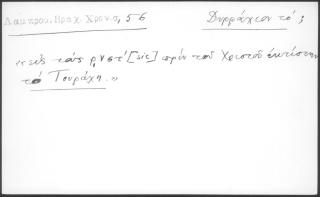 Λάμπρου, Βραχ. Χρον., 56 Δυρράχιον τό;
«εἰς τοὺς ρνστ' [sic] πρὶν τοῦ Χριστοῦ ἐκτίστην
τὸ Τουράχη.»